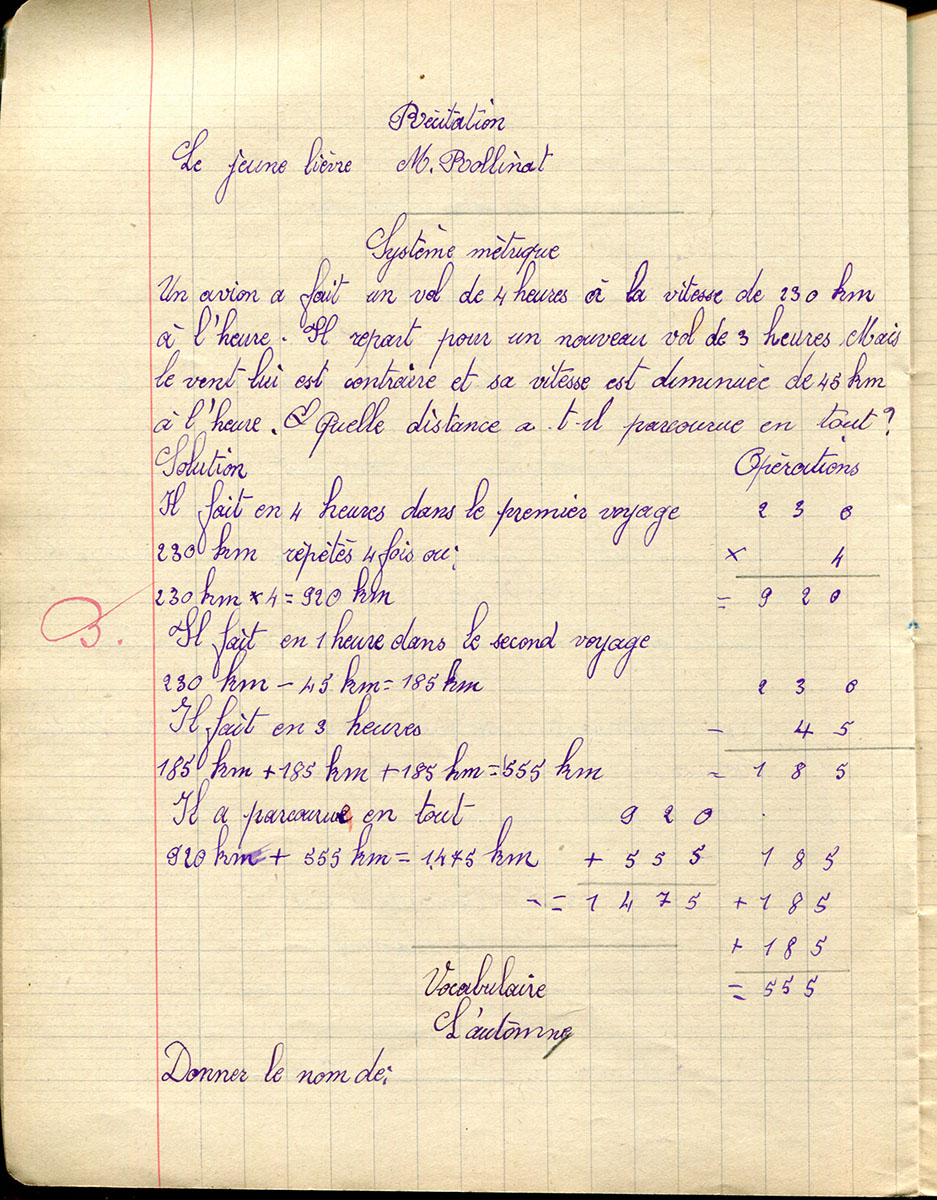 Récitation
Le jeune lièvre M. Rollinat
Système métrique
Un avion a fait un vol de 4 heures à la vitesse de 230 km
à l'heure. Il repart pour un nouveau vol de 3 heures. Mais
le vent lui est contraire et sa vitesse est diminuée de 45 km
à l'heure. Quelle distance a-t-il parcourue en tout?
Solution
Opérations
Il fait en 4 heures dans le premier voyage
230 km répétés 4 fois ou:
230 km × 4 = 920 km
230
× 4
= 920
3.
Il fait en 1 heure dans le second voyage
230 km - 45 km = 185 km
Il fait en 3 heures
230
- 45
= 185
185 km + 185 km + 185 km = 555 km
Il a parcouru en tout
920 km + 555 km = 1475 km
920
+ 555
= 1475
185
+ 185
+ 185
= 555
Vocabulaire
L'automne
Donner le nom de: